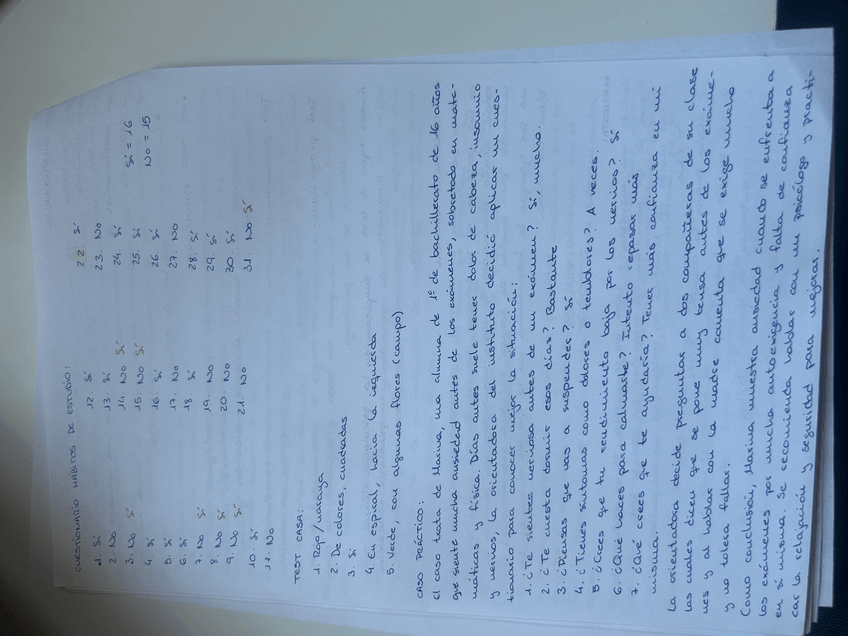 CUESTIONARIO HÁBITOS DE ESTUDIO:
1. Sí
2. No
3. No Sí
4. Sí
5. Sí
6. Sí
7. No Sí
8. No Sí
9. No Sí
10. Sí
11. No
12. Sí
13. Sí
14. No Sí
15. No Sí
16. Sí
17. No
18. Sí
19. No
20. No
21. No
22. Sí
23. No
24. Sí
25. Sí
26. Sí
27. No
28. Sí
29. Sí
30. Sí
31. No Sí
Sí = 16
No = 15
TEST CASA:
1. Rojo/naranja
2. De colores, cuadradas
3. Sí
4. En espiral, hacia la izquierda
5. Verde, con algunas flores (campo)
CASO PRÁCTICO:
El caso trata de Marina, una alumna de 1º de bachillerato de 16 años
que siente mucha ansiedad antes de los exámenes, sobretodo en mate-
máticas y física. Días antes suele tener dolor de cabeza, insomnio
y nervios, la orientadora del instituto decidió aplicar un cues-
tionario para conocer mejor la situación:
1. ¿Te sientes nerviosa antes de un exámen? Sí, mucho.
2. ¿Te cuesta dormir esos días? Bastante
3. ¿Piensas que vas a suspender? Sí
4. ¿Tienes síntomas como dolores o temblores? A veces.
5. ¿Crees que tu rendimiento baja por los nervios? Sí
6. ¿Qué haces para calmarte? Intento repasar más
7. ¿Qué crees que te ayudaría? Tener más confianza en mí
misma.
La orientadora decide preguntar a dos compañeras de su clase
las cuales dicen que se pone muy tensa antes de los exáme-
nes y al hablar con la madre comenta que se exige mucho
y no tolera fallar.
Como conclusión, Marina muestra ansiedad cuando se enfrenta a
los exámenes por mucha autoexigencia y falta de confianza
en sí misma. Se recomienda hablar con un psicólogo y practi-
car la relajación y seguridad para mejorar.